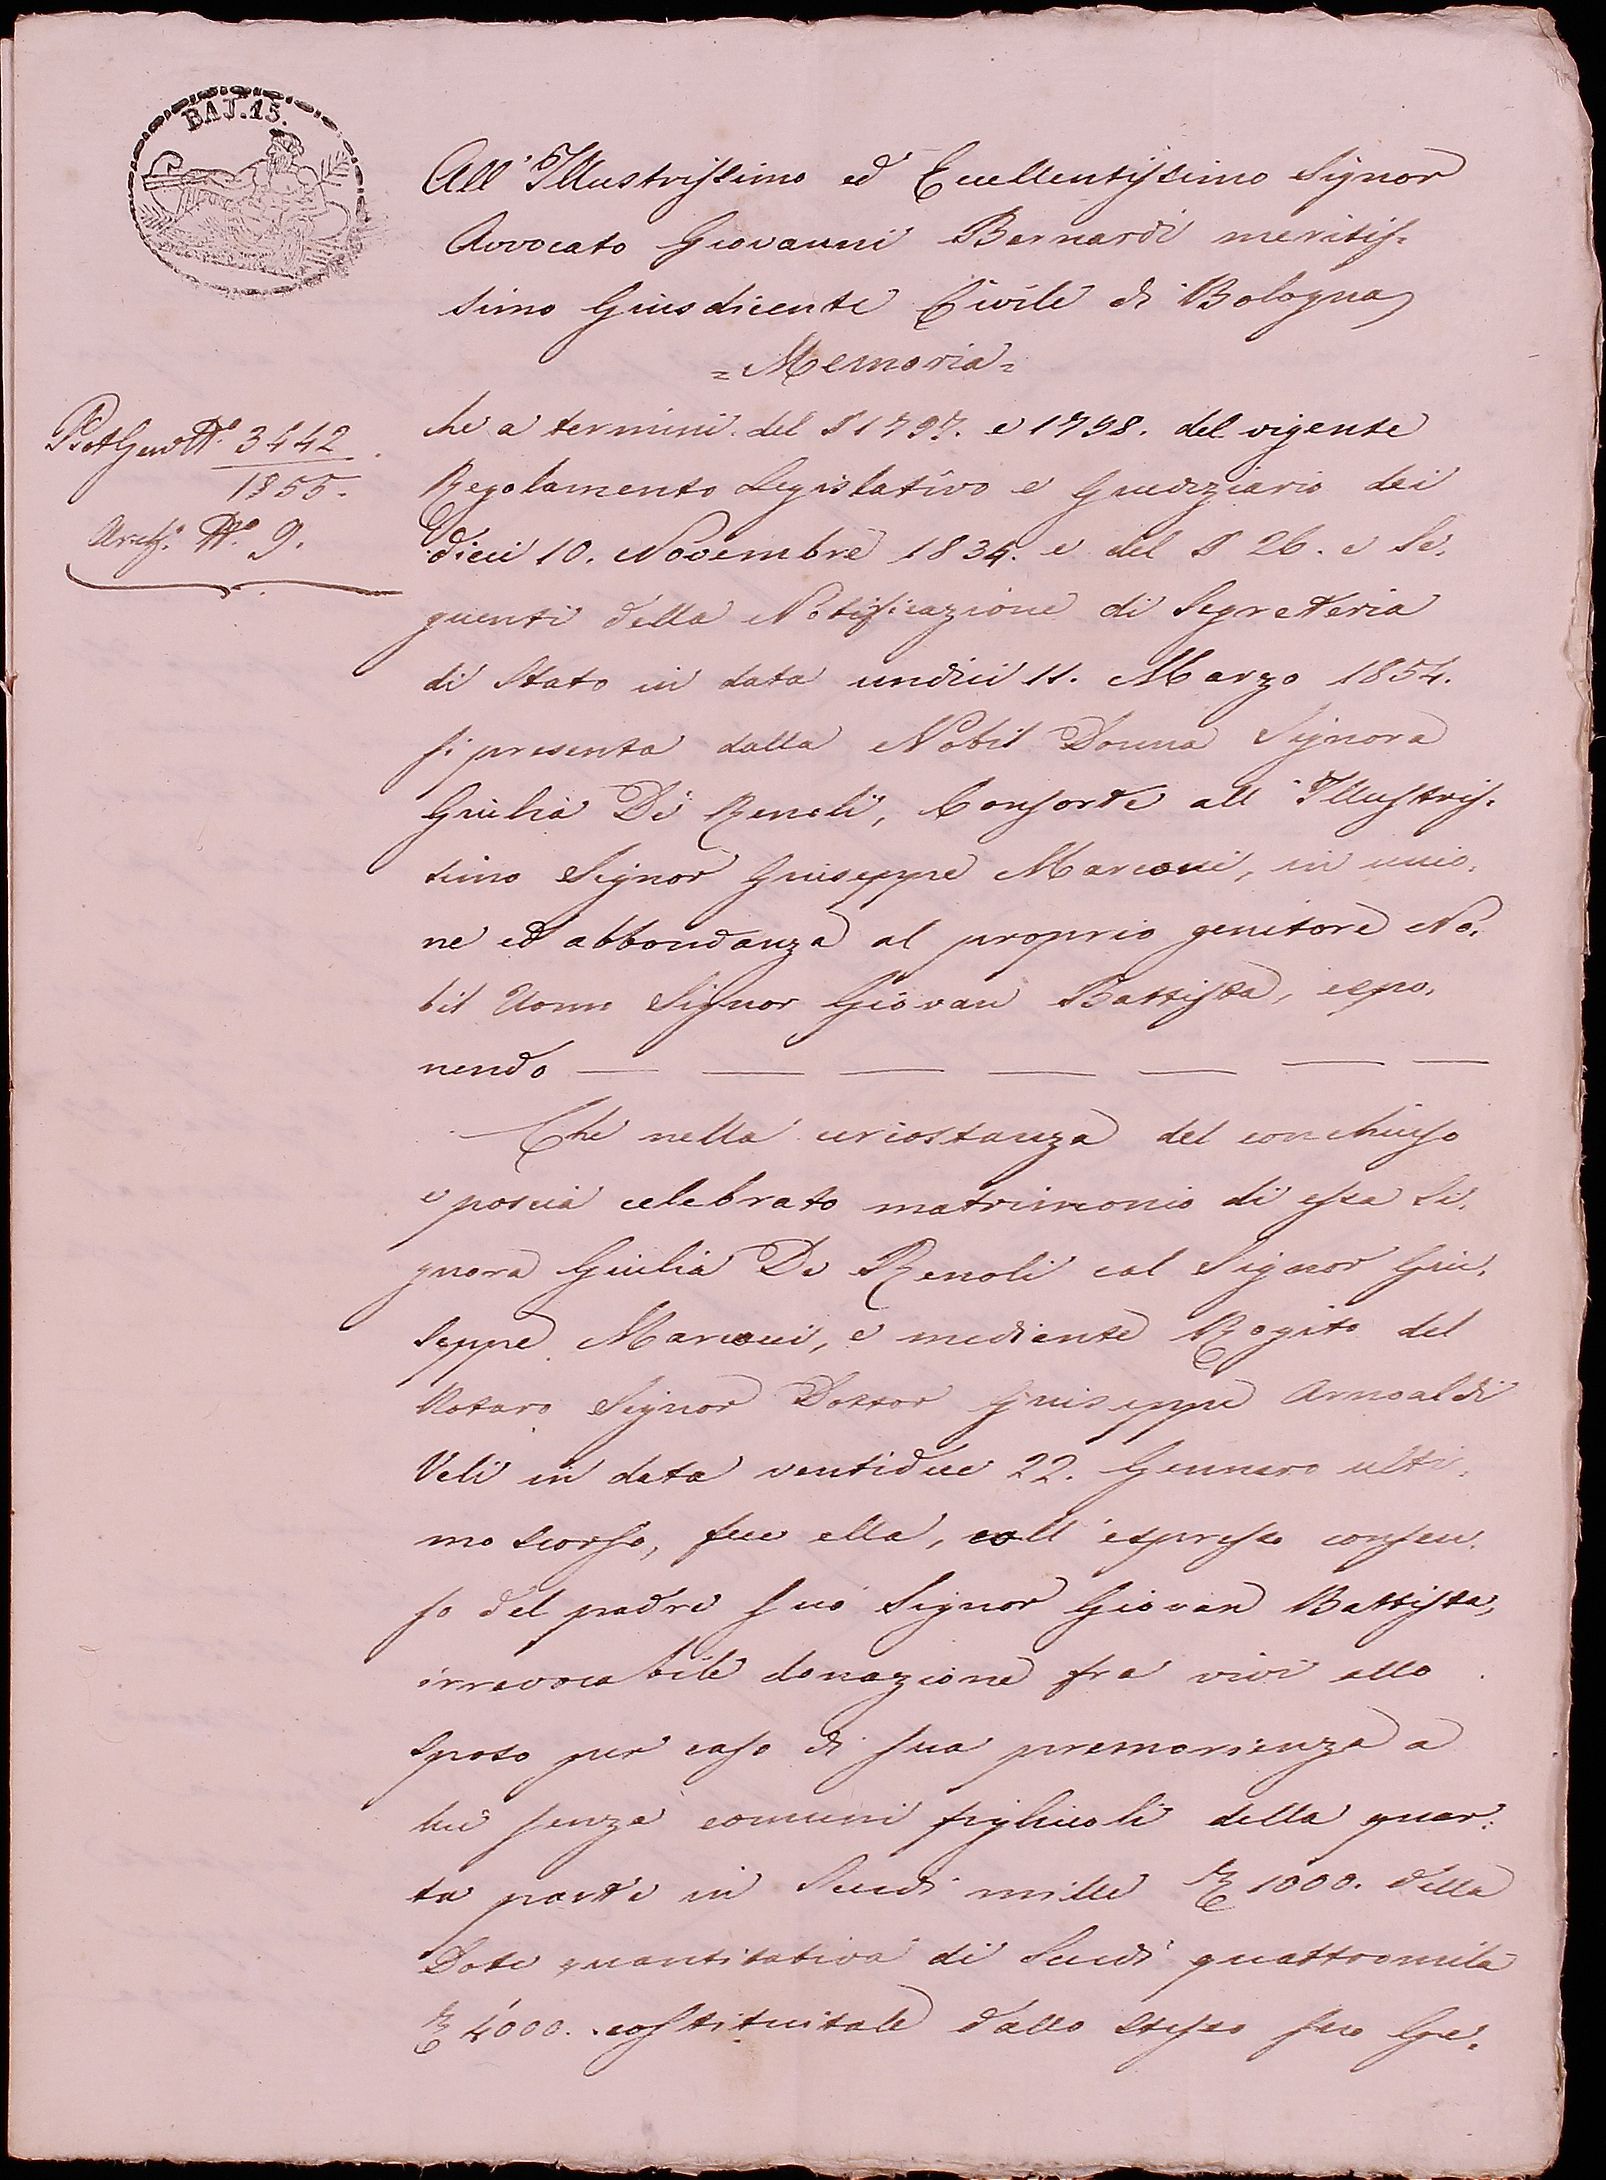 BAJ. 15.
All'Illustrissimo ed Eccellentissimo Signor
Avvocato Giovanni Bernardi meritis=
simo Giusdicente Civile di Bologna
=Memoria=
Prot Gen N.º 3442
1855.
Arch.º N.º 9.
che a termini del § 1797. e 1798. del vigente
Regolamento Legislativo e Giudiziario dei
dieci 10. Novembre 1834. e del § 26. e se=
guenti della Notificazione di Segreteria
di Stato in data undici 11. Marzo 1854.
si presenta dalla Nobil Donna Signora
Giulia De Renoli, Consorte all'Illustris=
simo Signor Giuseppe Marconi, in unio=
ne ed abbondanza al proprio genitore No=
bil Uomo Signor Giovan Battista, espo=
nendo — — — — — — —
Che nella circostanza del conchiuso
e poscia celebrato matrimonio di essa Si=
gnora Giulia De Renoli col Signor Giu=
seppe Marconi, e mediante Rogito del
Notaro Signor Dottor Giuseppe Arnoaldi
Veli in data ventidue 22. Gennaro ulti=
mo scorso, fece ella, coll'espresso consen=
so del padre suo Signor Giovan Battista,
irrevocabile donazione fra vivi allo
sposo per caso di sua premorienza a
lui senza comuni figliuoli della quar=
ta parte in Scudi mille 1000. della
Dote quantitativa di Scudi quattromila
4000. costituitale dallo stesso suo Ge=